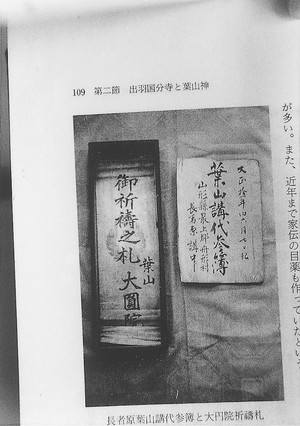 109　第二節　出羽国分寺と葉山神
が多い。また、近年まで家伝の目薬も作っていたという
葉山講代参簿
山形縣最上郡舟形村
長者原講中
御祈禱之札
葉山
大圓院
長者原葉山講代参簿と大円院祈禱札